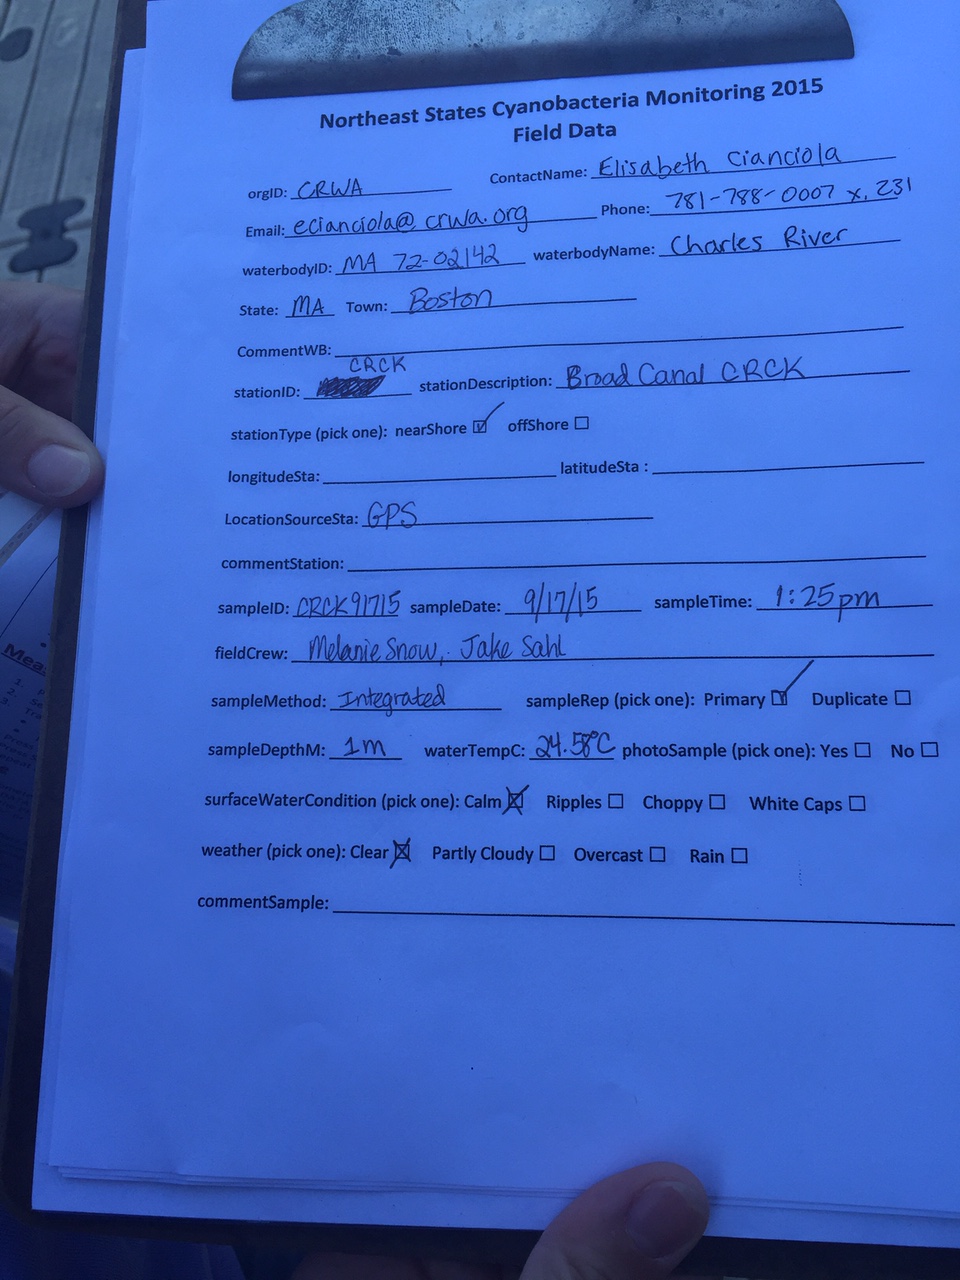 Northeast States Cyanobacteria Monitoring 2015
Field Data
orgID: CRWA ContactName: Elisabeth Cianciola
Email: ecianciola@crwa.org Phone: 781-788-0007 x. 231
waterbodyID: MA 72-02142 waterbodyName: Charles River
State: MA Town: Boston
CommentWB:
CRCK
stationID: stationDescription: Broad Canal CRCK
stationType (pick one): nearShore ☑ offShore ☐
longitudeSta: latitudeSta :
LocationSourceSta: GPS
commentStation:
sampleID: CRCK91715 sampleDate: 9/17/15 sampleTime: 1:25pm
fieldCrew: Melanie Snow, Jake Sahl
sampleMethod: Integrated sampleRep (pick one): Primary ☑ Duplicate ☐
sampleDepthM: 1m waterTempC: 24.58°C photoSample (pick one): Yes ☐ No ☐
surfaceWaterCondition (pick one): Calm ☒ Ripples ☐ Choppy ☐ White Caps ☐
weather (pick one): Clear ☒ Partly Cloudy ☐ Overcast ☐ Rain ☐
commentSample: